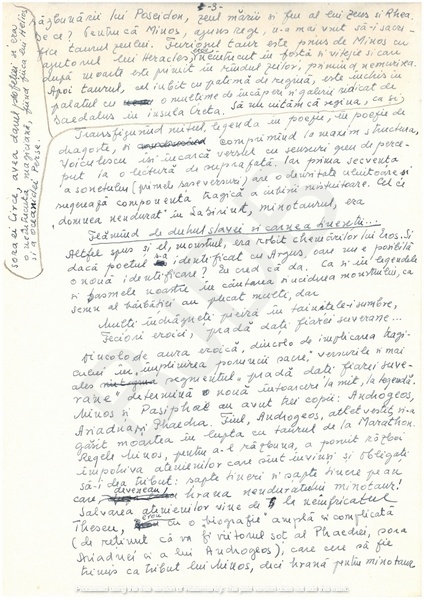 -3-
răzbunării lui Poseidon, zeul mării și fiu al lui Zeus și Rhea.
De ce? Pentru că Minos, ajuns rege, n-a mai vrut să-i sacri-
fice taurul zeului. Furiosul taur este prins de Minos cu
ajutorul lui Heracles,
după moarte este primit în rândul zeilor, primind nemurirea.
Apoi taurul, cel iubit cu patimă de regină, este închis în
palatul cu o mulțime de încăperi și galerii ridicat de
Daedalus în insula Creta. Să nu uităm că regina, ca și
sora ei Circe, avea darul profeției și era
o neîntrecută magiciană, fiind fiica lui Helios
și a oceanidei Perse.
Transfigurând mitul, legenda în poezie, în poezie de
dragoste, și comprimând la maxim structura,
Voiculescu își încarcă versul cu sensuri greu de perce-
put la o lectură de suprafață. Iar prima secvență
a sonetului (primele șase versuri) are o densitate uluitoare și
sugerează componenta tragică a iubirii mistuitoare. Cel ce
"domnea nendurat" în Labirint, minotaurul, era
Flămând de duhul slavei și carnea dineștii...
Altfel spus și el, monstrul, era robit chemărilor lui Eros. Și
dacă poetul s-a identificat cu Argus, oare nu e posibilă
o nouă identificare? Eu cred că da. Ca și în legendele
și basmele noastre în căutarea și uciderea monstrului, ca
semn al bărbăției au plecat mulți, dar
Mulți îndrăgneți pieiră în tainițele-i sumbre,
Feciori eroici, pradă dați fiarei suverane...
Dincolo de aura eroică, dincolo de implicarea tragi-
cului în "împlinirea poruncii sacre" versurile și mai
ales segmentul "pradă dați fiarei suve-
rane" determină o nouă întoarcere la mit, la legendă.
Minos și Pasiphae au avut trei copii: Androgeos,
Ariadna și Phaedra. Fiul, Androgeos, atlet vestit, și-a
găsit moartea în lupta cu taurul de la Marathon.
Regele Minos, pentru a-l răzbuna, a pornit război
împotriva atenienilor care sunt învinși și obligați
să-i dea tribut: șapte tineri și șapte tinere pe an,
care deveneau hrana nenduratului minotaur!
Salvarea atenienilor vine de la neînfricatul
Theseu, erou cu o "biografie" amplă și complicată
(de reținut că va fi viitorul soț al Phaedrei, sora
Ariadnei și a lui Androgeos), care cere să fie
trimis ca tribut lui Minos, deci hrană pentru minotaur.